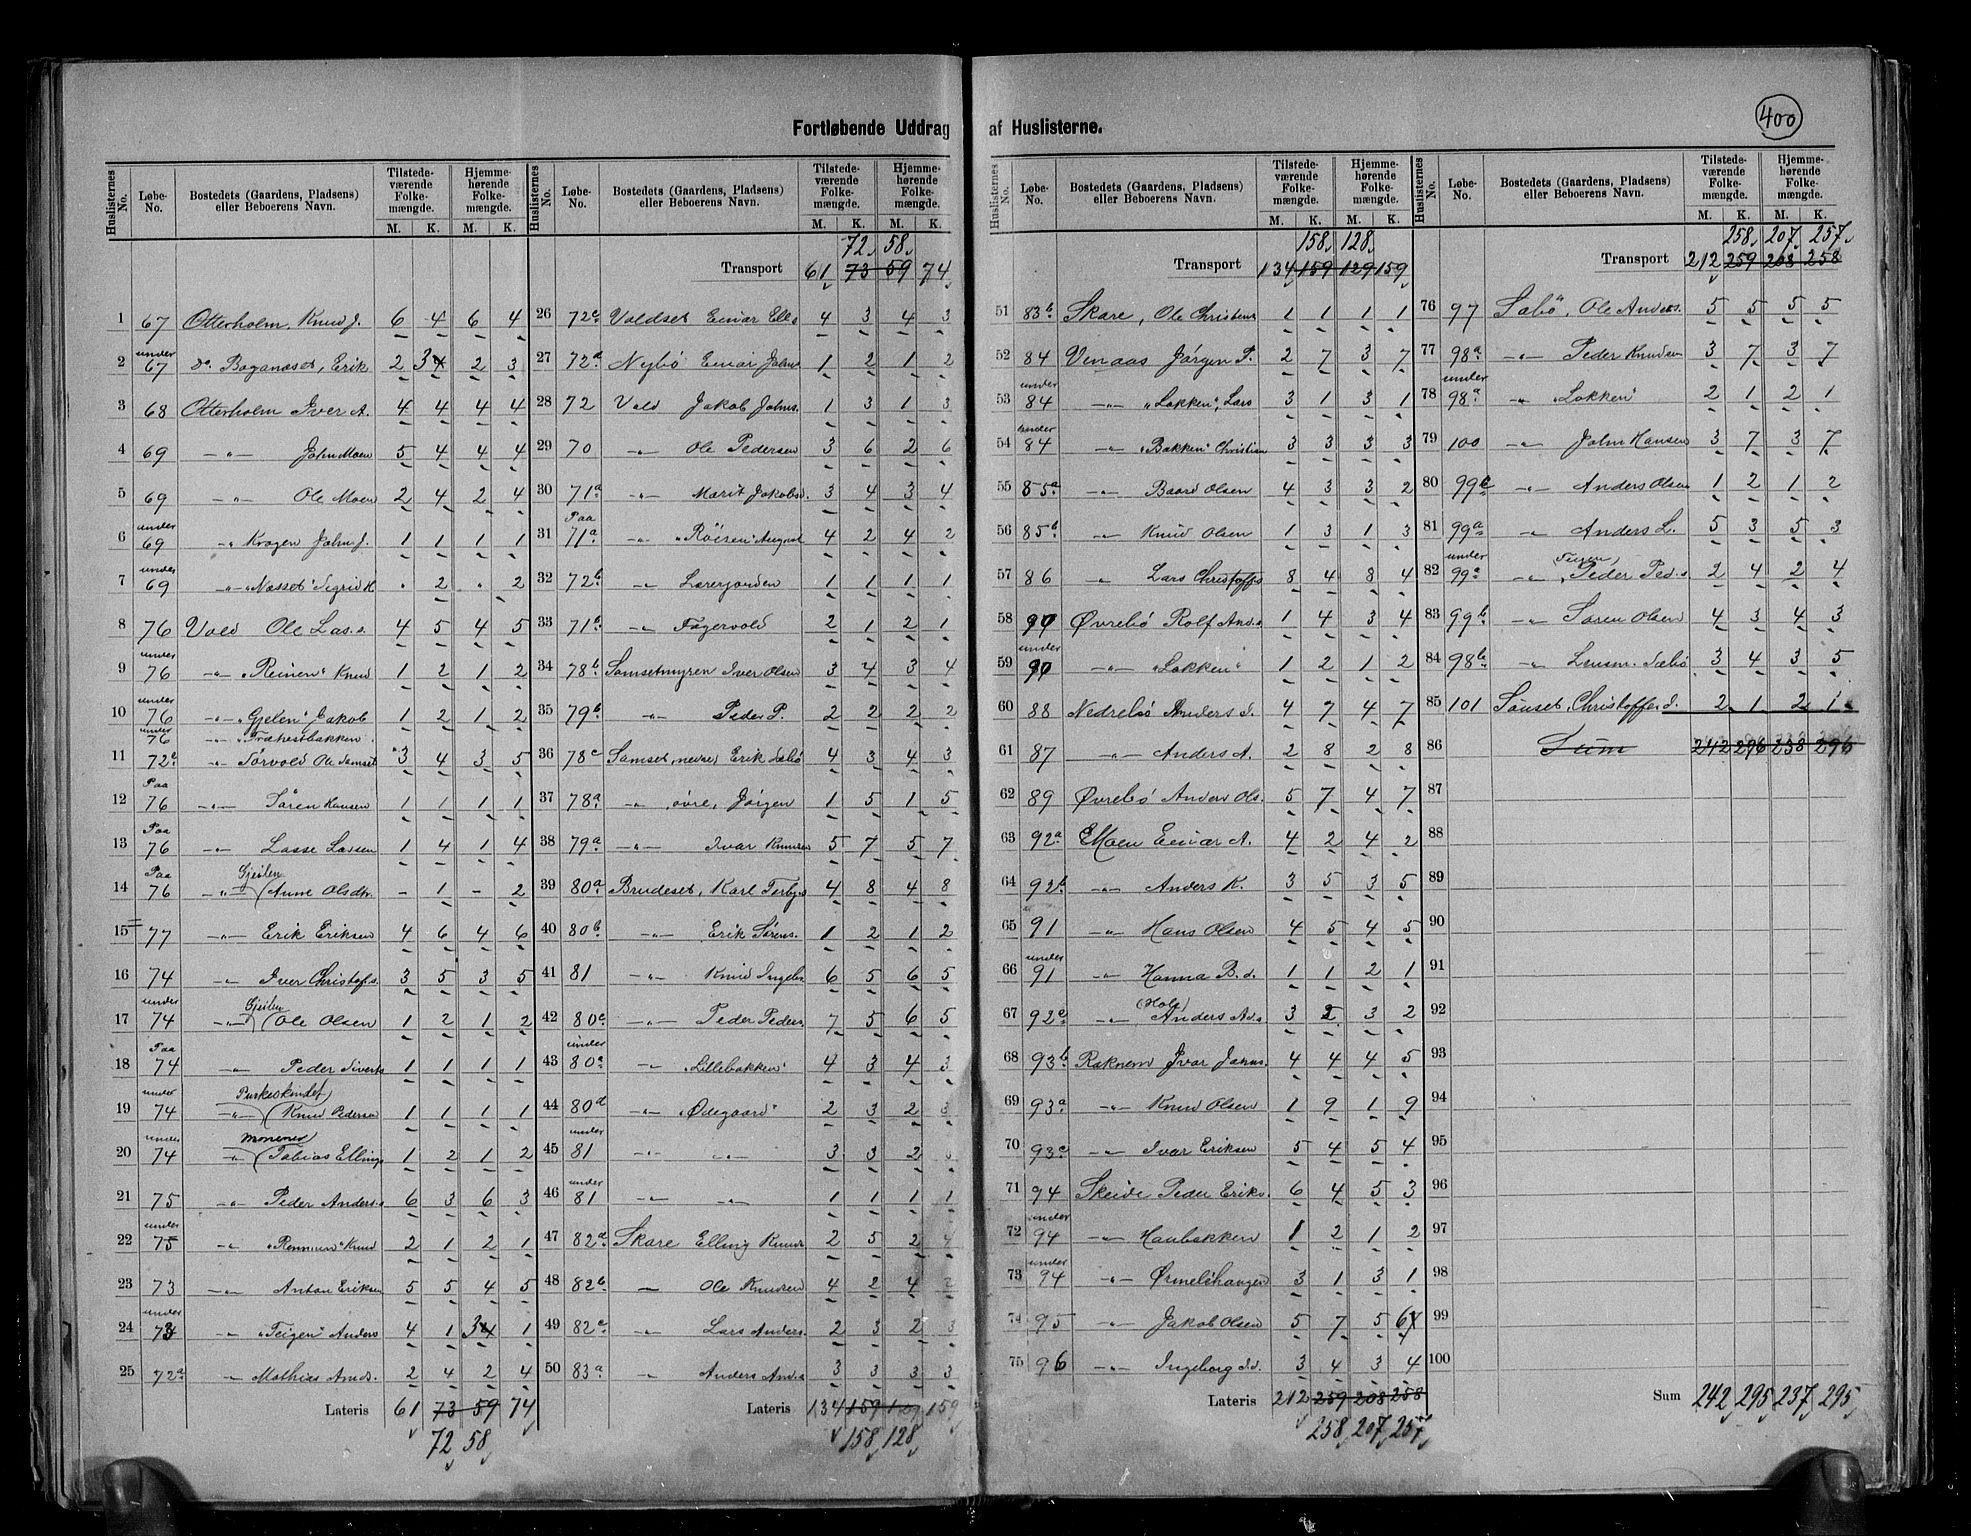 Fortløbende Uddrag af Huslisterne.
400
Huslisternes No. Løbe-No. Bostedets (Gaardens, Pladsens) eller Beboerens Navn. Tilstedeværende Folkemængde. M. K. Hjemmehørende Folkemængde. M. K.
1 67 Otterholm, Knud J. 6 4 6 4
2 under 67 Do Baganæset, Erik 2 3 2 3
3 68 Otterholm Iver A. 4 4 4 4
4 69 -"- John Moen 5 4 4 4
5 69 -"- Ole Moen 2 4 2 4
6 under 69 -"- Kragen John J. 1 1 1 1
7 under 69 -"- "Næsset" Sigrid K . 2 . 2
8 76 Vold Ole Las.s. 4 5 4 5
9 under 76 -"- "Reinen" Knud 1 2 1 2
10 under 76 -"- "Gjelen" Jakob 1 2 1 2
under 76 -"- Træhestbakken
11 72c -"- Torvold Ole Samset 3 4 3 5
12 Paa 76 -"- Søren Hansen 1 1 1 1
13 Paa 76 -"- Lasse Larsen 1 4 1 4
14 Paa 76 -"- Gjeilen (Anne Olsdtr. - 1 - 2
15 77 -"- Erik Eriksen 4 6 4 6
16 74 -"- Iver Christofs. 3 5 3 5
17 under 74 -"- Gjeilen (Ole Olsen 1 2 1 2
18 Paa 74 -"- Peder Siverts 1 1 1 1
19 under 74 -"- Purkeskindet (Knud Pedersen 1 1 1 1
20 under 74 -"- Monenes (Tobias Ellings 1 2 1 2
21 75 -"- Peder Anders.s 6 3 6 3
22 under 75 -"- Knud 2 1 2 1
23 73 -"- Anton Eriksen 5 5 4 5
24 under 73 -"- "Teigen" Anders 4 1 3 1
25 72a -"- Mathias Ands. 2 4 2 4
Lateris 61 73 59 74
72 58
72 58
Transport 61 73 59 74
26 72c Voldset Einar Ell.s 4 3 4 3
27 72a Nybö Einar Johns 1 2 1 2
28 72 Vold Jakob Johns. 1 3 1 3
29 70 -"- Ole Pedersen 3 6 2 6
30 71a -"- Marit Jakobsd. 3 4 3 4
31 Paa 71a -"- "Röisen" August 4 2 4 2
32 72b -"- Lærerjorden 1 1 1 1
33 71b -"- Fagervold 2 1 2 1
34 78b Samsetmyren Iver Olsen 3 4 3 4
35 79b -"- Peder P. 2 2 2 2
36 78c Samset, nedre, Erik Sæbö 4 3 4 3
37 78a -"- övre, Jörgen 1 5 1 5
38 79a -"- Ivar Knudsen 5 7 5 7
39 80a Brudeset, Karl Torbj.s 4 8 4 8
40 80b -"- Erik Sörens. 1 2 1 2
41 81 -"- Knud Ingebr. 6 5 6 5
42 80c -"- Peder Peders. 7 5 6 5
43 under 80a -"- "Lillebakken" 4 3 4 3
44 80d -"- "Ødegaard" 2 3 2 3
45 under 81 -"- -"- 3 3 2
46 under 81 -"- -"- 1 1 1 1
47 82a Skare Elling Knuds. 2 5 2 4
48 82b — Ole Knudsen 4 2 4 2
49 82c -"- Lars Anders. 2 3 2 3
50 83a -"- Anders And.s 3 3 3 3
Lateris 134 159 129 159
158 128
158 128
Transport 134 159 129 159
51 83b Skare, Ole Christens 1 1 1 1
52 84 Venaas Jörgen P. 2 7 3 7
53 under 84 -"- "Løkken", Lars 3 1 3 1
54 under 84 -"- "Bakken" Christian 3 3 3 3
55 85a -"- Baard Olsen 4 3 3 2
56 85b -"- Knud Olsen 1 3 1 3
57 86 -"- Lars Christoffs 8 4 8 4
58 90 Øvrebö Rolf And.s 1 4 3 4
59 under 90 -"- "Løkken" 1 2 1 2
60 88 Nedrebö Anders S. 4 7 4 7
61 87 -"- Anders A. 2 8 2 8
62 89 Øvrebö Anders Ols. 5 7 4 7
63 92a Moen Einar A. 4 2 4 2
64 92b -"- Anders K. 3 5 3 5
65 91 -"- Hans Olsen 4 5 4 5
66 under 91 -"- Hanna B.d. 1 1 2 1
67 92c -"- (Hols) Anders And.s 3 2 3 2
68 93b Raknem Ivar Johns. 4 4 4 5
69 93a -"- Knud Olsen 1 9 1 9
70 93c -"- Ivar Eriksen 5 4 5 4
71 94 Skeide Peder Eriks. 6 4 5 3
72 under 94 -"- Haubakken 1 2 1 2
73 under 94 -"- Ørmelshaugen 3 1 3 1
74 95 -"- Jakob Olsen 5 7 5 6
75 96 -"- Ingeborg A.d. 3 4 3 4
Lateris 212 259 208 258
258 207 257
258 207 257
Transport 212 259 208 258
76 97 Sæbö, Ole Anders. 5 5 5 5
77 98a -"- Peder Knudsen 3 7 3 7
78 under 98a -"- "Løkken" 2 1 2 1
79 100 -"- John Hansen 3 7 3 7
80 99c -"- Anders Olsen 1 2 1 2
81 99a -"- Anders L. 5 3 5 3
82 under 99a -"- Teigen, Peder Ped.s 2 4 2 4
83 99b -"- Søren Olsen 4 3 4 3
84 98b -"- Lensm. Sæbö 3 4 3 5
85 101 Sanset, Christoffer S. 2 1 2 1
86 Sum 242 296 238 296
87
88
89
90
91
92
93
94
95
96
97
98
99
100
Sum 242 295 237 295